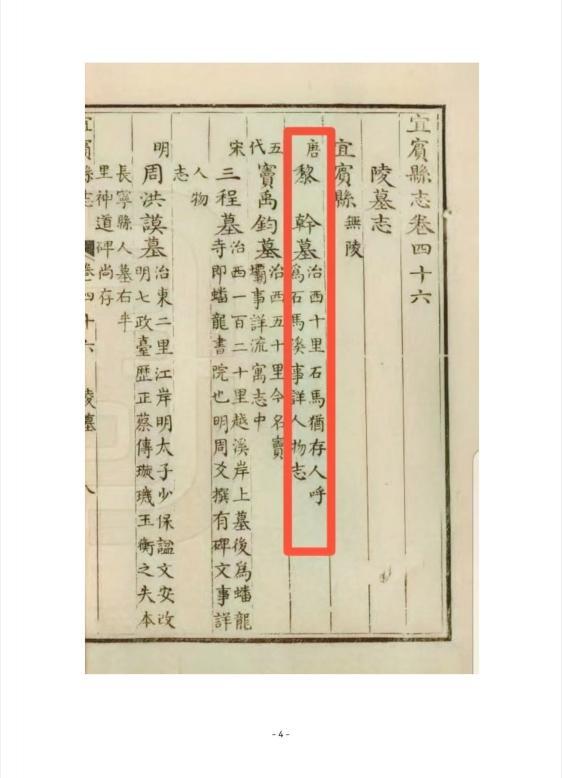 宜賓縣志卷四十六
陵墓志
宜賓縣無陵
唐黎幹墓治西十里石馬猶存人呼
爲石馬溪事詳人物志
五代竇禹鈞墓治西五十里今名竇
壩事詳流寓志中
宋三程墓治西一百二十里越溪岸上墓後爲蟠龍
寺即蟠龍書院也明周爻撰有碑文事詳
人物
志
明周洪謨墓治東二里江岸明太子少保謚文安改
明七政臺歷正蔡傳璇璣玉衡之失本
長寧縣人墓右半
里神道碑尚存
宜賓縣志 卷四十六 陵墓 八
- 4 -